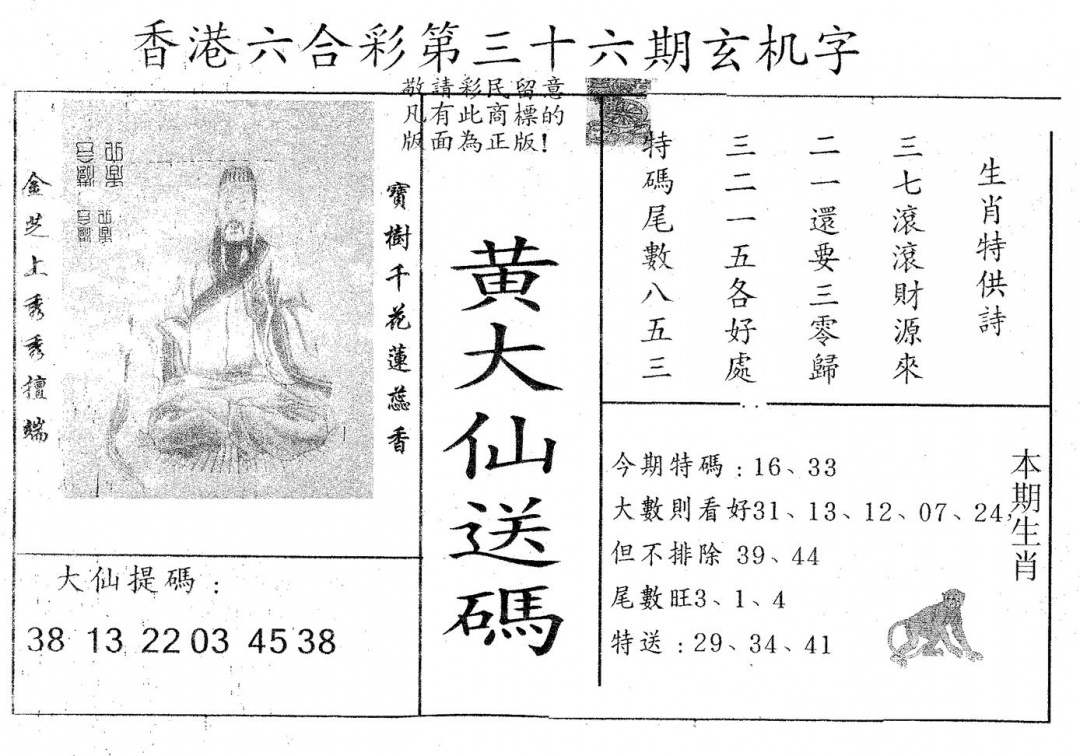 香港六合彩第三十六期玄机字
敬請彩民留意
凡有此商標的
版面為正版!
金芝上秀秀擅端
寶樹千花蓮蕊香
黄大仙送碼
生肖特供詩
三七滾滾財源來
二一還要三零歸
三二一五各好處
特碼尾數八五三
大仙提碼:
38 13 22 03 45 38
今期特碼:16、33
大數則看好31、13、12、07、24,
但不排除 39、44
尾數旺3、1、4
特送:29、34、41
本期生肖